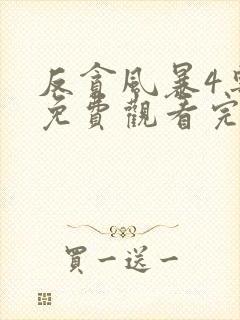 反貪風暴4
免費觀看完
買一送一